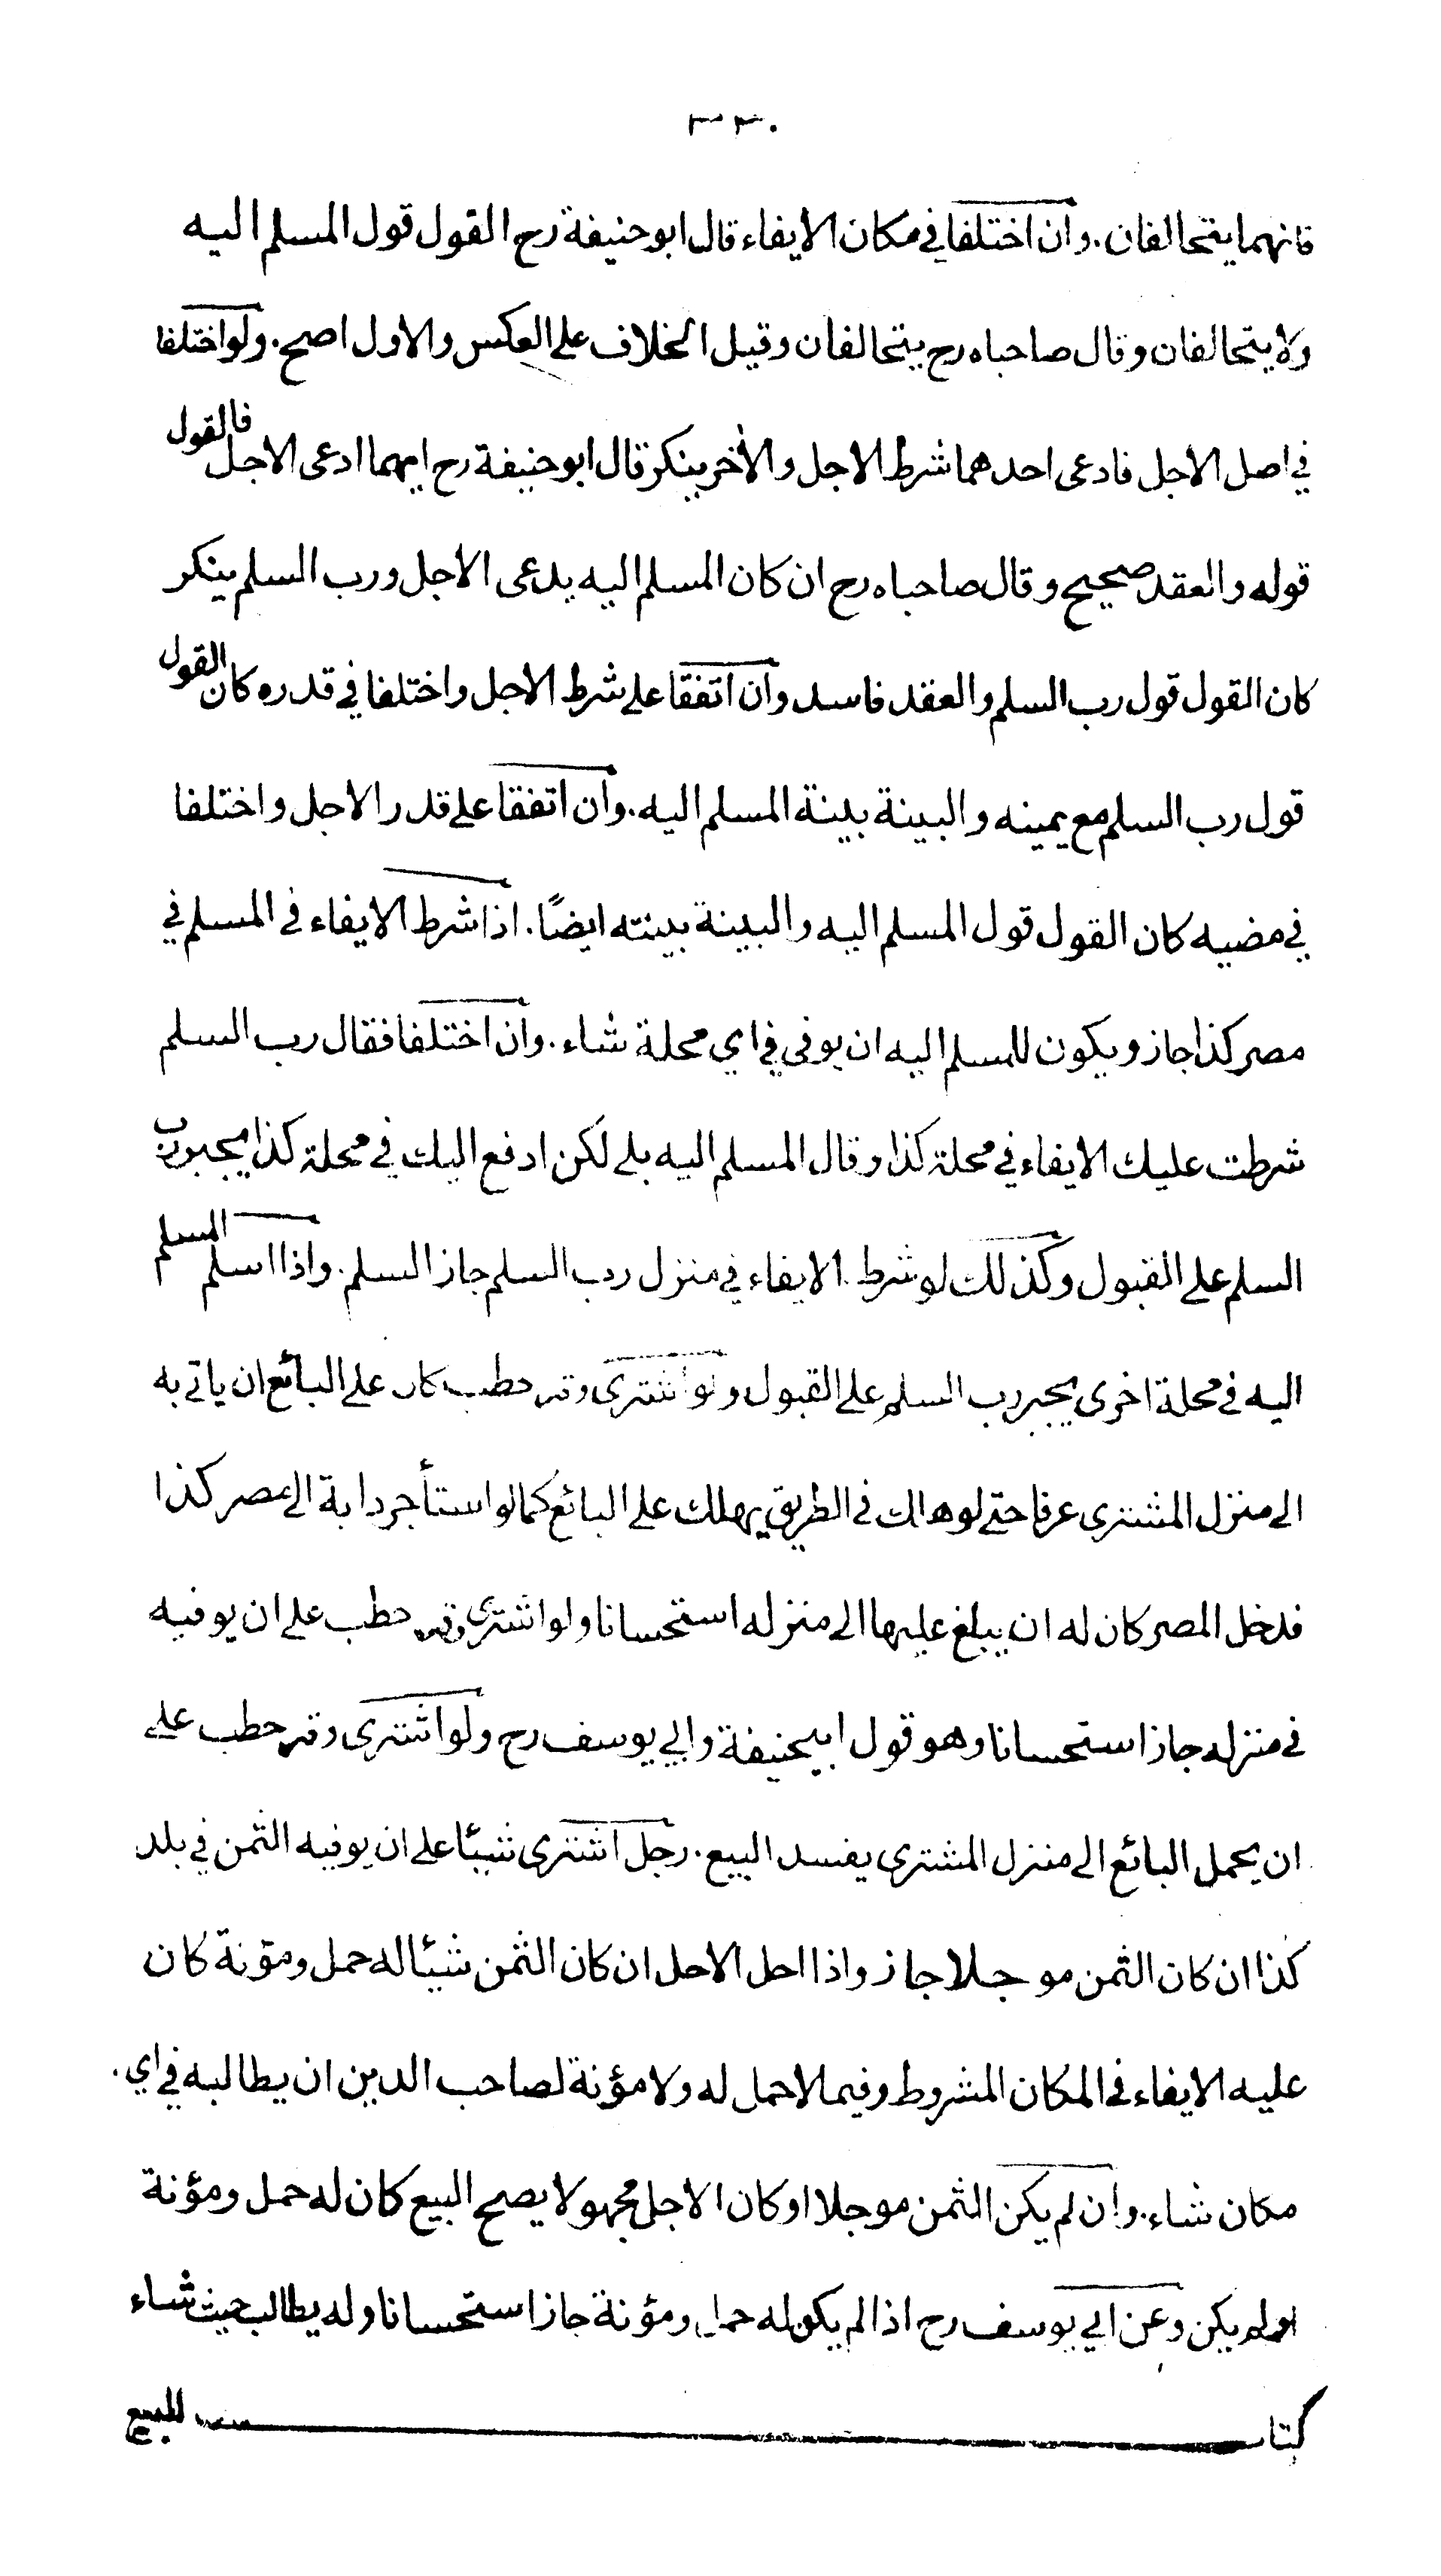 ٣٣٠
فانهما يتحالفان. وان اختلفا في مكان الايفاء قال ابو حنيفة رح القول قول المسلم اليه
ولا يتحالفان وقال صاحباه رح يتحالفان وقيل الخلاف على العكس والاول اصح. ولو اختلفا
في اصل الاجل فادعى احدهما شرط الاجل والآخر ينكر قال ابو حنيفة رح ايهما ادعى الاجل فالقول
قوله والعقد صحيح وقال صاحباه رح ان كان المسلم اليه يدعى الاجل ورب السلم ينكر
كان القول قول رب السلم والعقد فاسد وان اتفقا على شرط الاجل واختلفا في قدره كان القول
قول رب السلم مع يمينه والبينة بينة المسلم اليه. وان اتفقا على قدر الاجل واختلفا
في مضيه كان القول قول المسلم اليه والبينة بينته ايضًا. اذا شرط الايفاء في المسلم في
مصر كذا جاز ويكون للمسلم اليه ان يوفى في اي محلة شاء. وان اختلفا فقال رب السلم
شرطت عليك الايفاء في محلة كذا وقال المسلم اليه بلى لكن ادفع اليك في محلة كذا يجبر رب
السلم على القبول وكذلك لو شرط الايفاء في منزل رب السلم جاز السلم. واذا اسلم المسلم
اليه في محلة اخرى يجبر رب السلم على القبول ولو اشترى وقر حطب كان على البائع ان ياتي به
الى منزل المشترى عرفا حتى لو هلك في الطريق يهلك على البائع كما لو استأجر دابة الى مصر كذا
فدخل المصر كان له ان يبلغ عليها الى منزله استحسانا ولو اشترى وقر حطب على ان يوفيه
في منزله جاز استحسانا وهو قول ابيحنيفة وابي يوسف رح ولو اشترى وقر حطب على
ان يحمل البائع الى منزل المشترى يفسد البيع. رجل اشترى شيئا على ان يوفيه الثمن في بلد
كذا ان كان الثمن موجلا جاز واذا حل الاجل ان كان الثمن شيئا له حمل ومؤنة كان
عليه الايفاء في المكان المشروط وفيما لاحمل له ولا مؤنة لصاحب الدين ان يطالبه في اي
مكان شاء. وان لم يكن الثمن موجلا او كان الاجل مجهولا يصح البيع كان له حمل ومؤنة
او لم يكن وعن ابي يوسف رح اذا لم يكن له حمل ومؤنة جاز استحسانا وله يطالب حيث شاء
كتاب البيع